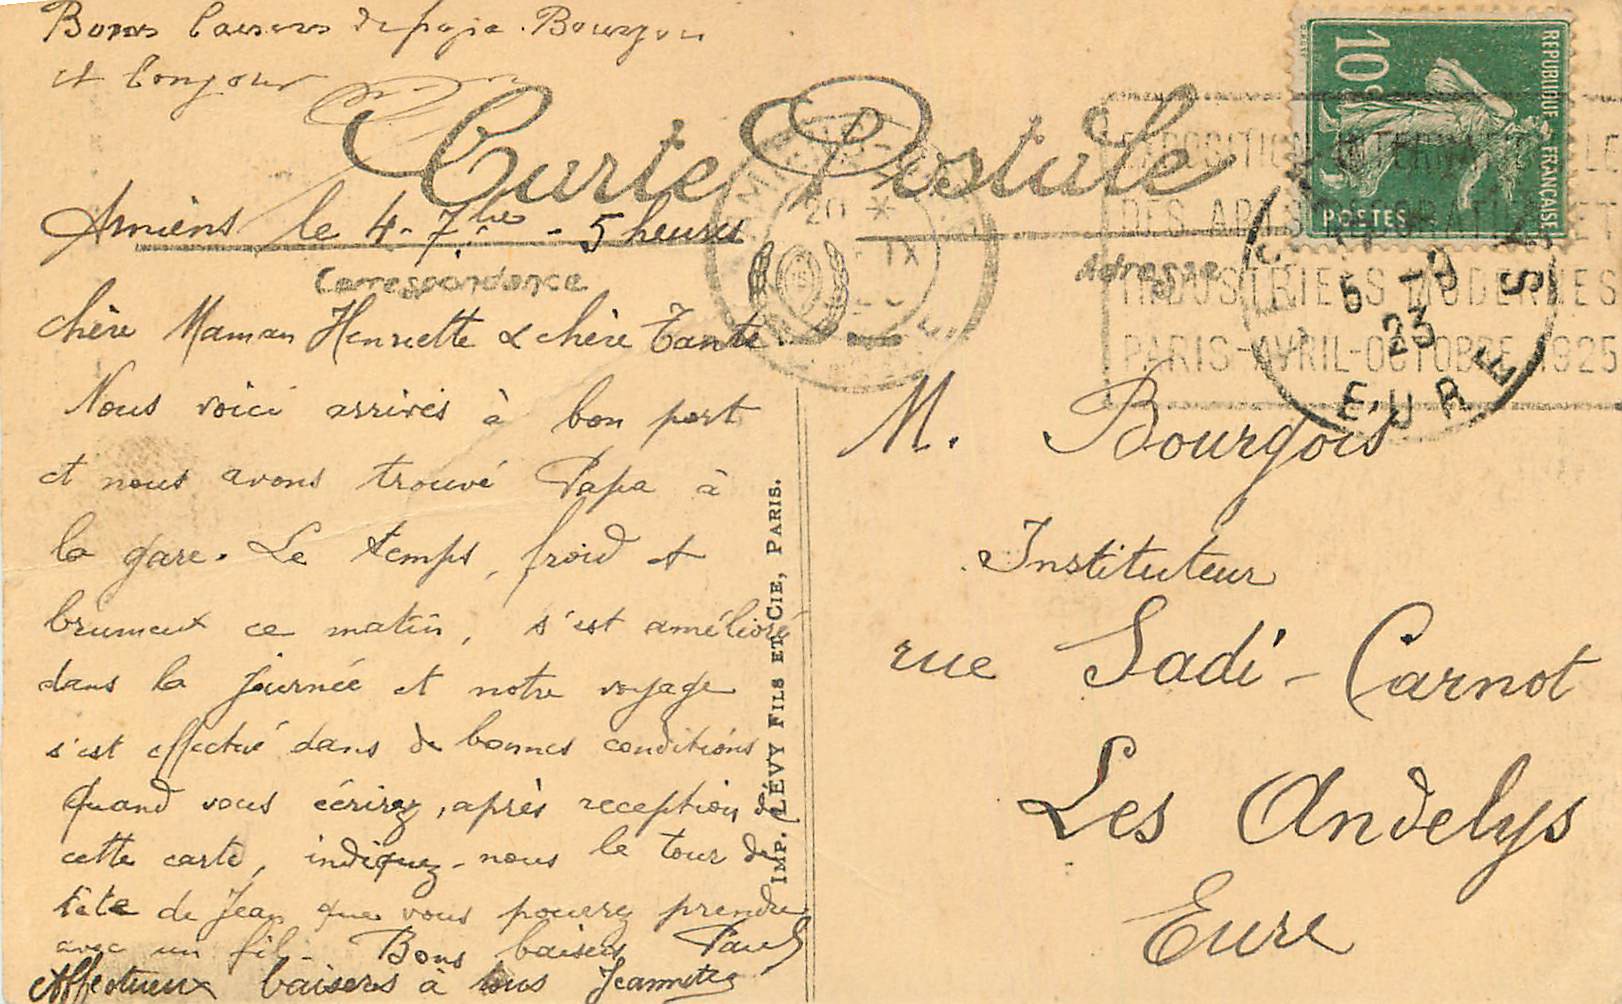 Bons baisers de papa Bourgois
et bonjour
Carte Postale
Amiens le 4-7bre - 5 heures
Correspondance
Adresse
REPUBLIQUE FRANÇAISE
10c
POSTES
AMIENS
20 *
IX
EXPOSITION INTERNATIONALE
DES ARTS DECORATIFS ET
INDUSTRIELS MODERNES
PARIS-AVRIL-OCTOBRE 1925
5 -9
23
EURE
chère Maman Henriette & chère Tante.
Nous voici arrivés à bon port
et nous avons trouvé Papa à
la gare. Le temps, froid et
brumeux ce matin, s'est amélioré
dans la journée et notre voyage
s'est effectué dans de bonnes conditions
Quand vous écrirez, après reception de
cette carte, indiquez-nous le tour de
tête de Jean que vous pourrez prendre
avec un fil. Bons baisers Paul
Affectueux baisers à tous Jeannette
IMP. LÉVY FILS ET CIE, PARIS.
M. Bourgois
Instituteur
rue Sadi-Carnot
Les Andelys
Eure